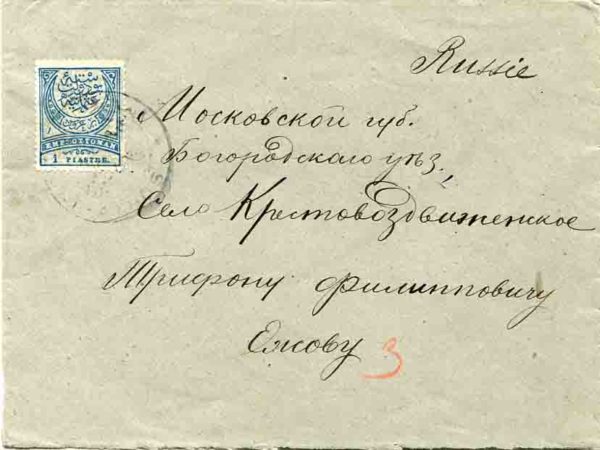 Russie
Московской губ.
Богородскаго уѣз.,
Село Крестовоздвиженское
Трифону Филипповичу
Ежову 3
EMP. OTTOMAN
1 PIASTRE.